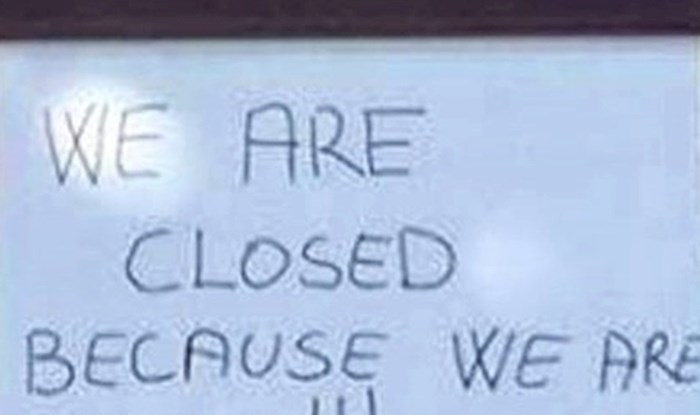 WE ARE
CLOSED
BECAUSE WE ARE